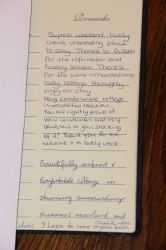 Remarks
Superb weekend, lovely
views, interesting place
to stay. Thanks to
for the information and
history lesson. Thanks
for the wine + chocolates
lovely cottage, thoroughly
enjoy our stay.
Very comfortable cottage
in wonderful location.
You are rightly proud of
your renovation and very
generous in you stocking
of it! Thank you for a
relaxed + a lovely week.
Beautifully restored &
Comfortable cottage in
stunning surroundings
weekend and
I hope to come again